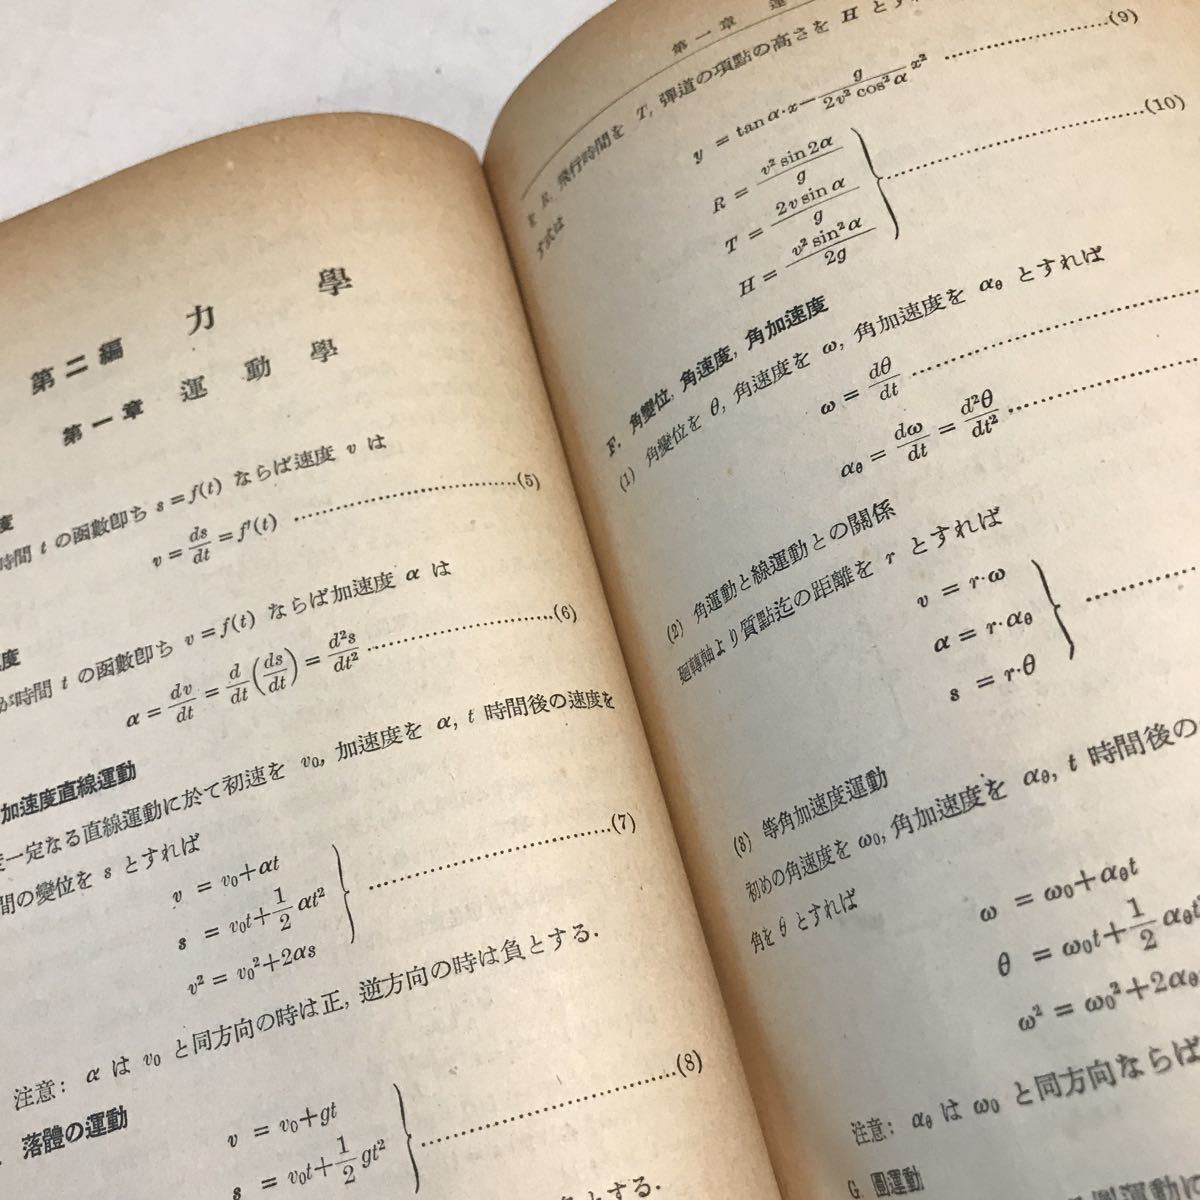 第二編 力 學
第一章 運 動 學
時間 t の函數卽ち s = f(t) ならば速度 v は
v = ds/dt = f′(t) ……(5)
が時間 t の函數卽ち v = f(t) ならば加速度 α は
α = dv/dt = d/dt(ds/dt) = d²s/dt² ……(6)
加速度直線運動
度一定なる直線運動に於て初速を v₀, 加速度を α, t 時間後の速度を
間の變位を s とすれば
v = v₀+αt
s = v₀t+1/2 αt² ……(7)
v² = v₀²+2αs
注意: α は v₀ と同方向の時は正, 逆方向の時は負とする.
落體の運動
v = v₀+gt
s = v₀t+1/2 gt² ……(8)
負とする.
第一章 運
を R, 飛行時間を T, 彈道の項點の高さを H とすれ
す式は
y = tan α·x − g/2v² cos² α x² ……(9)
R = v² sin 2α/g
T = 2v sin α/g ……(10)
H = v² sin² α/2g
F. 角變位, 角速度, 角加速度
(1) 角變位を θ, 角速度を ω, 角加速度を αθ とすれば
ω = dθ/dt ……
αθ = dω/dt = d²θ/dt² ……
(2) 角運動と線運動との關係
廻轉軸より質點迄の距離を r とすれば
v = r·ω
α = r·αθ ……
s = r·θ
(3) 等角加速度運動
初めの角速度を ω₀, 角加速度を αθ, t 時間後の
角を θ とすれば
ω = ω₀+αθt
θ = ω₀t+1/2 αθt²
ω² = ω₀²+2αθ
注意: αθ は ω₀ と同方向ならば
G. 圓運動